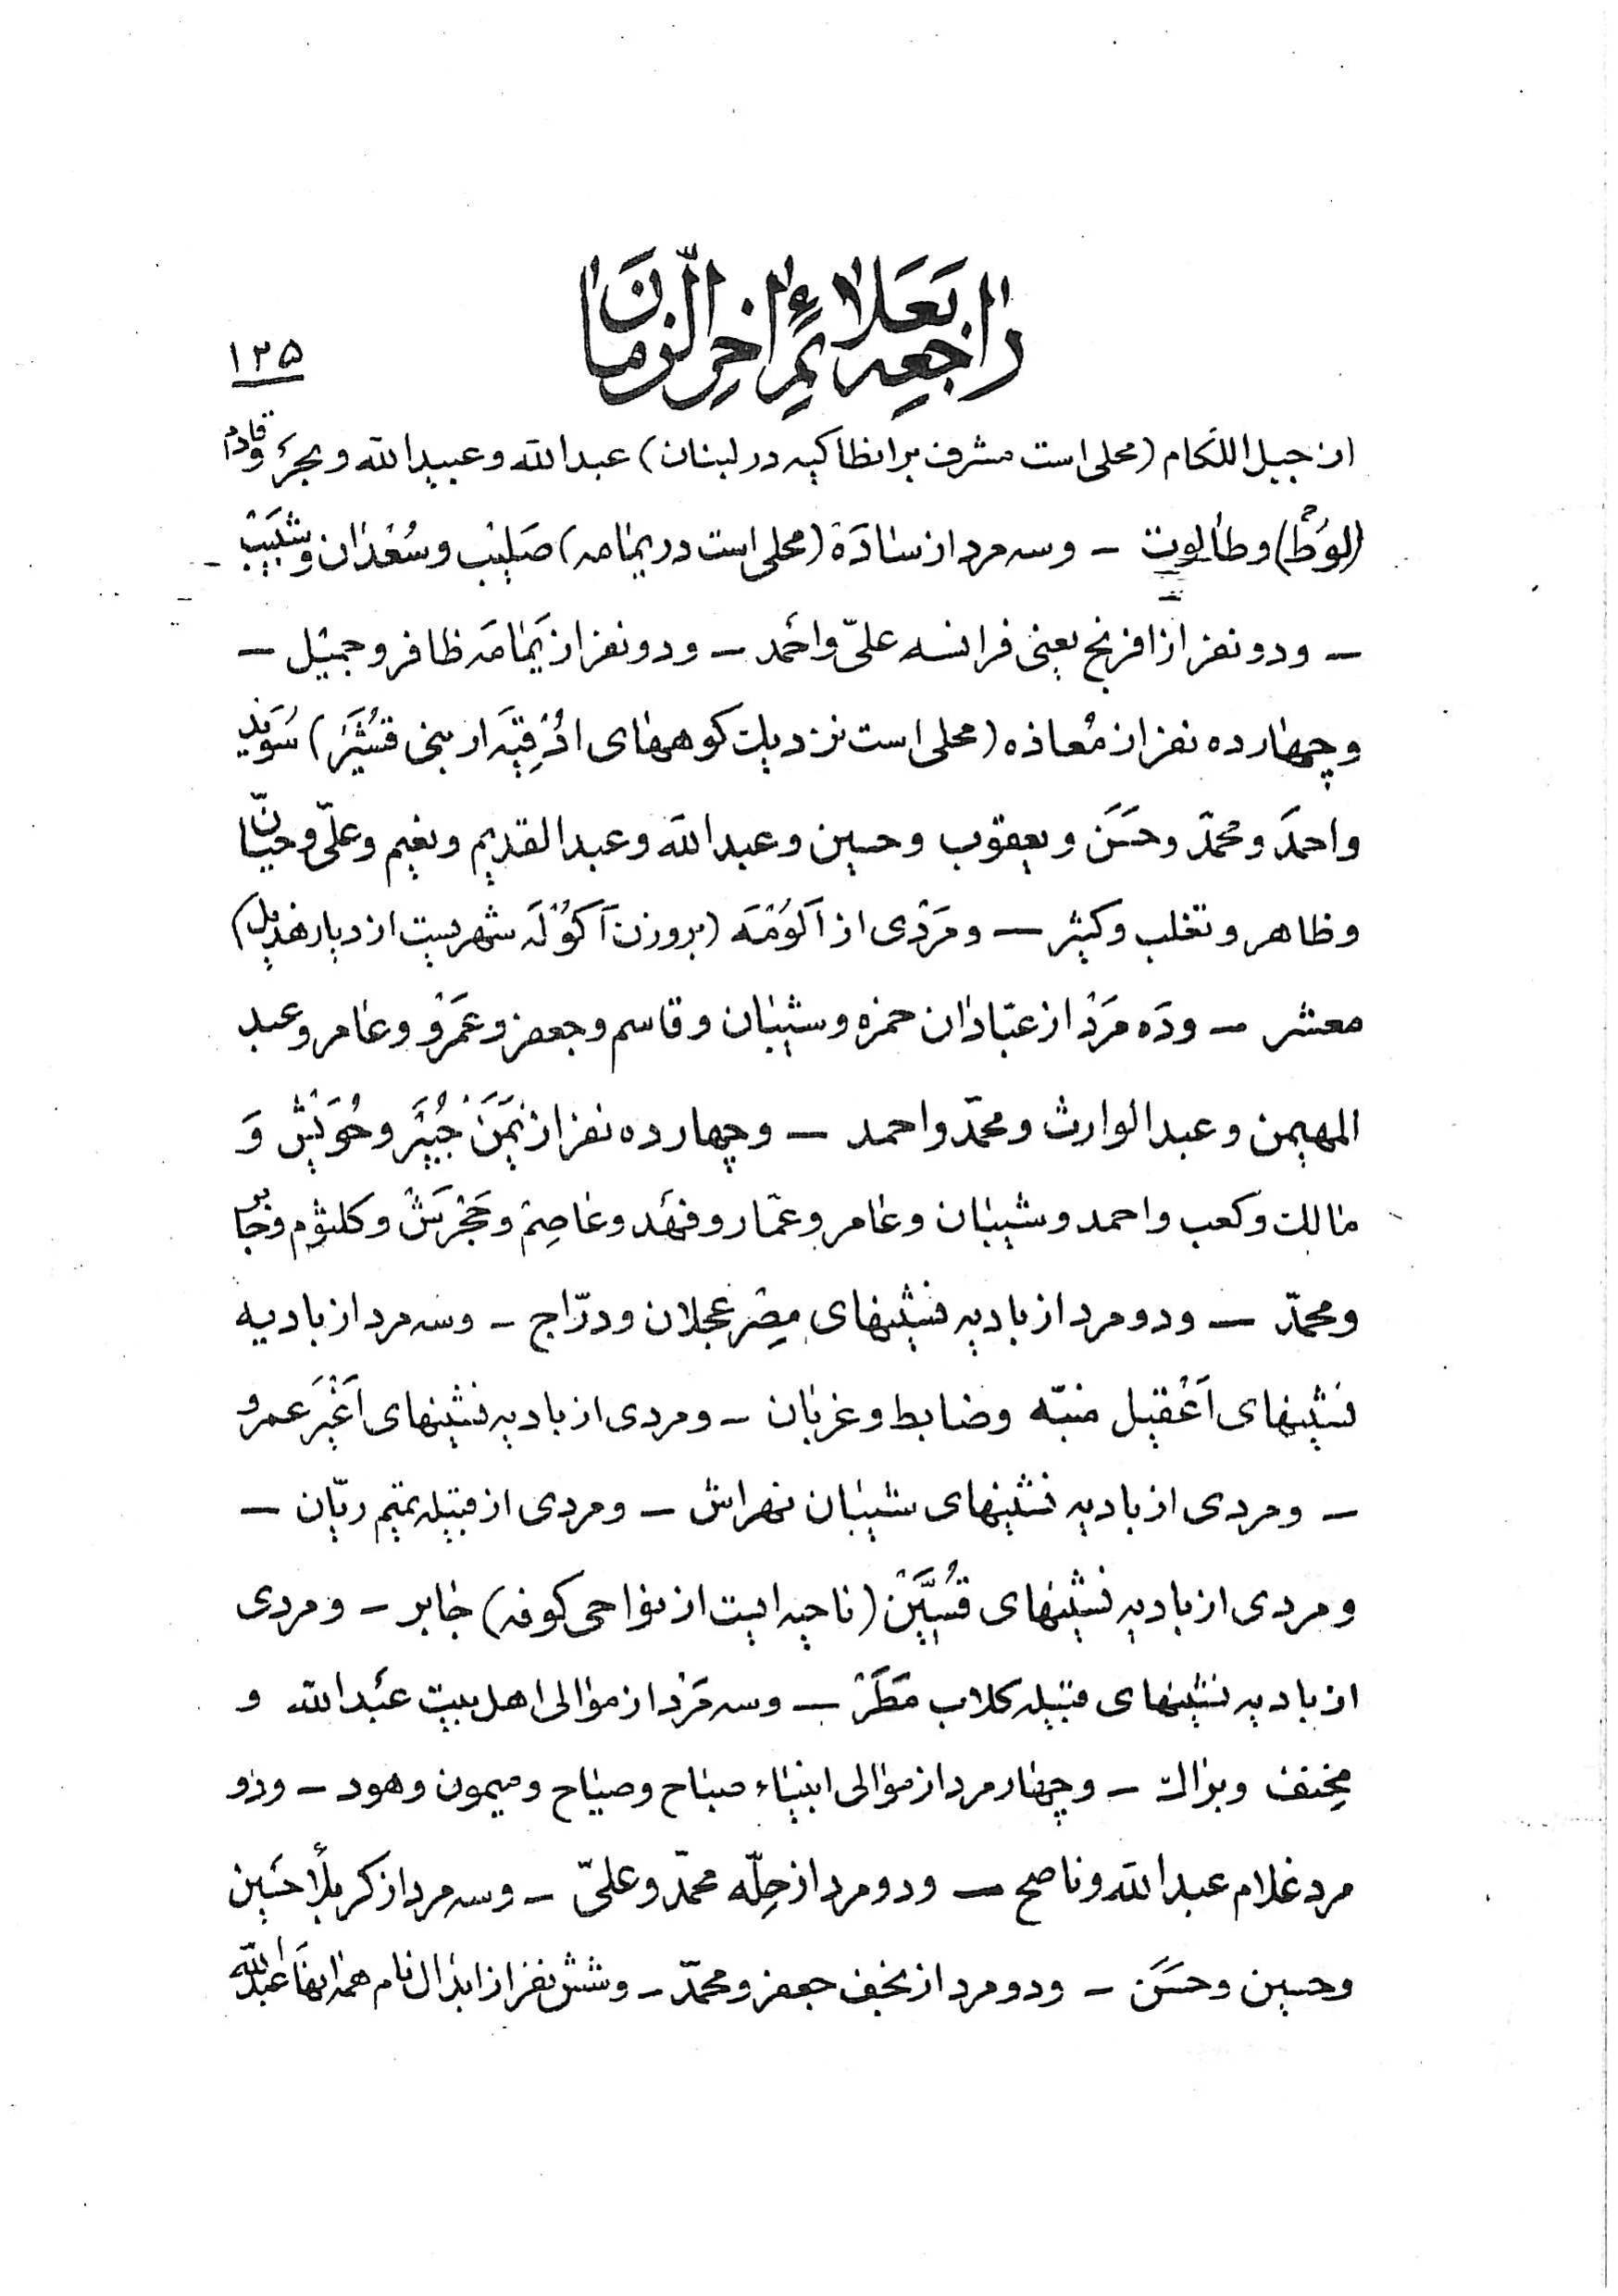 راجعه بعلائم اخر الزمان
۱۲۵
از جبل اللکام (محلی است مشرف بر انطاکیه در لبنان) عبدالله و عبیدالله و بحر و قادم
(لوط) و طالوت – و سه مرد از سادَة (محلی است در یمامه) صَلیب و سُعْدان و شَبیب
– و دو نفر از افرنج یعنی فرانسه علیّ و احمد – و دو نفر از یَمامَه ظافر و جمیل –
و چهارده نفر از مُعاذه (محلی است نزدیک کوههای اُذْقِیَه از بنی قُشَیْر) سُوَید
و احمَد و محمّد و حَسَن و یعقوب و حسین و عبدالله و عبدالقدیم و نعیم و علیّ و حیّان
و ظاهر و تغلب و کثیر – و مَرْدی از اَلوُمَه (بر وزن اَکوُلَه شهریست از دیار هذیل)
معشر – و دَه مَرْد از عبّادان حمزه و شیبان و قاسم و جعفر و عَمْرو و عامر و عبد
المهیمن و عبدالوارث و محمّد و احمد – و چهارده نفر از یَمَن جُبَیْر و حُوَیْش وَ
مالک و کعب و احمد و شیبان و عامر و عمّار و فهْد و عاصِم و حَجْرَش و کلثوم و جابر
و محمّد – و دو مرد از بادیه نشینهای مِصْر عجلان و درّاج – و سه مرد از بادیه
نشینهای اَعْقیل منبّه و ضابط و غربان – و مردی از بادیه نشینهای اَغْیَر عمرو
– و مردی از بادیه نشینهای شیبان نهراش – و مردی از قبیله تمیم ریّان –
و مردی از بادیه نشینهای قُسَیّن (ناحیه ایست از نواحی کوفه) جابر – و مردی
از بادیه نشینهای قبیله کلاب مَطَرْ – و سه مَرْد از موالی اهل بیت عَبْدالله و
مِخنف و براک – و چهار مرد از موالی انبیاء صباح و صیاح و میمون و هود – و دو
مرد غلام عبدالله و ناصح – و دو مرد از حِلّه محمّد و علیّ – و سه مرد از کربلا حَسین
و حسین و حسَن – و دو مرد از نجف جعفر و محمّد – و شش نفر از ابدال نام همه انها عبدالله